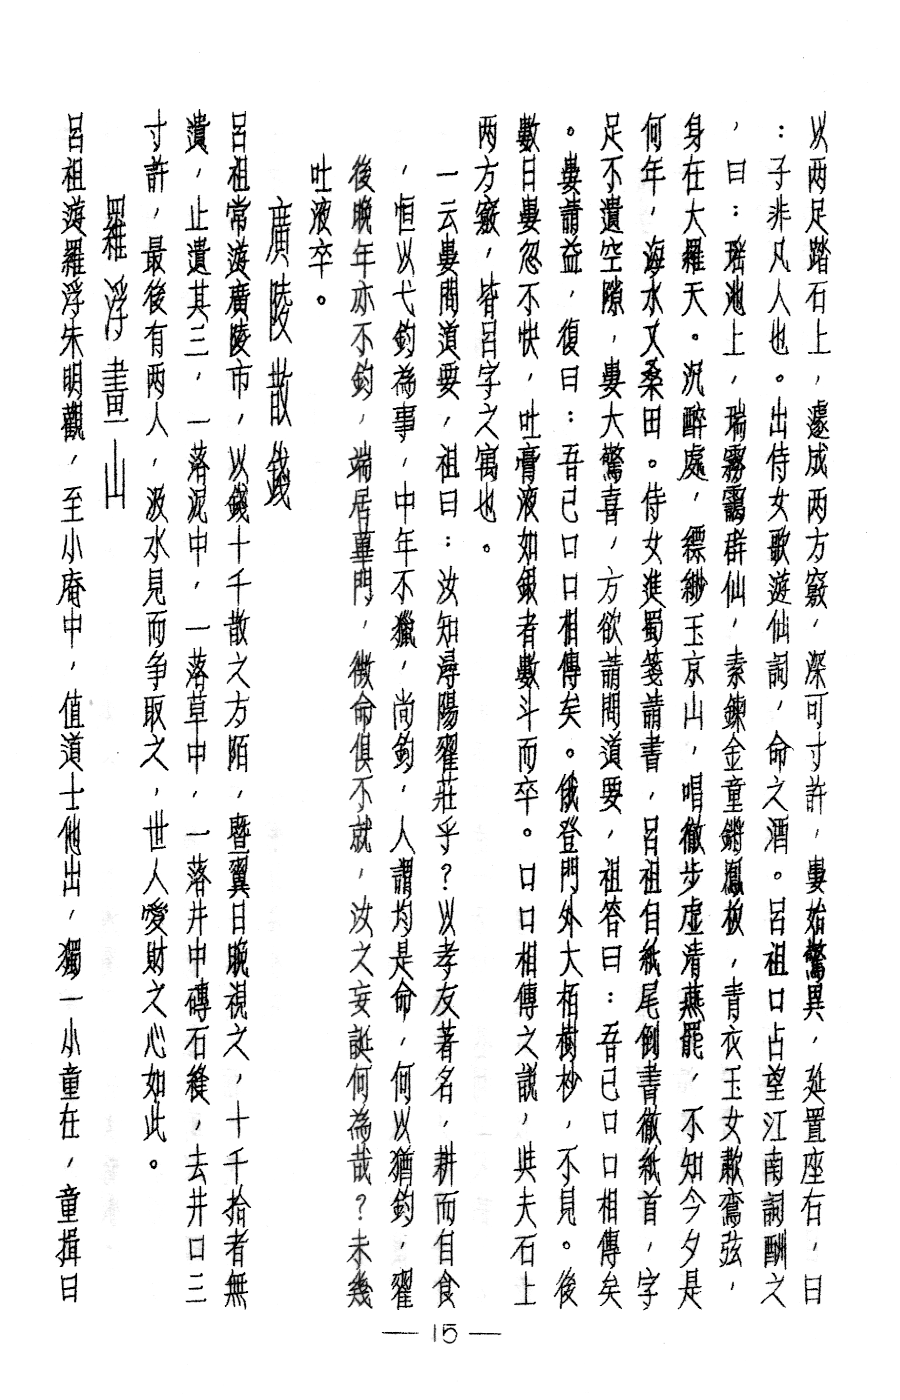 以两足踏石上，遽成两方竅，深可寸許，婁始驚異，延置座右，曰
：子非凡人也。出侍女歌遊仙詞，命之酒。呂祖口占望江南詞酬之
，曰：瑤池上，瑞霧靄群仙，素鍊金童鏘鳳板，青衣玉女歗鸞弦，
身在大羅天。沉醉處，縹緲玉京山，唱徹步虛清燕罷，不知今夕是
何年，海水又桑田。侍女進蜀箋請書，呂祖自紙尾倒書徹紙首，字
足不遺空隙，婁大驚喜，方欲請問道要，祖答曰：吾已口口相傳矣
。婁請益，復曰：吾已口口相傳矣。俄登門外大栢樹杪，不見。後
數日婁忽不快，吐膏液如銀者數斗而卒。口口相傳之說，與夫石上
两方竅，皆呂字之寓也。
一云婁問道要，祖曰：汝知潯陽翟莊乎？以孝友著名，耕而自食
，恒以弋釣為事，中年不獵，尚釣，人謂均是命，何以猶釣，翟
後晚年亦不釣，端居蓽門，徵命俱不就，汝之妄誕何為哉？未幾
吐液卒。
廣陵散錢
呂祖常游廣陵市，以錢十千散之方陌，暨翼日晚視之，十千拾者無
遺，止遺其三，一落泥中，一落草中，一落井中磚石縫，去井口三
寸許，最後有两人，汲水見而争取之，世人愛財之心如此。
羅浮畫山
呂祖游羅浮朱明觀，至小庵中，值道士他出，獨一小童在，童揖曰
— 15 —